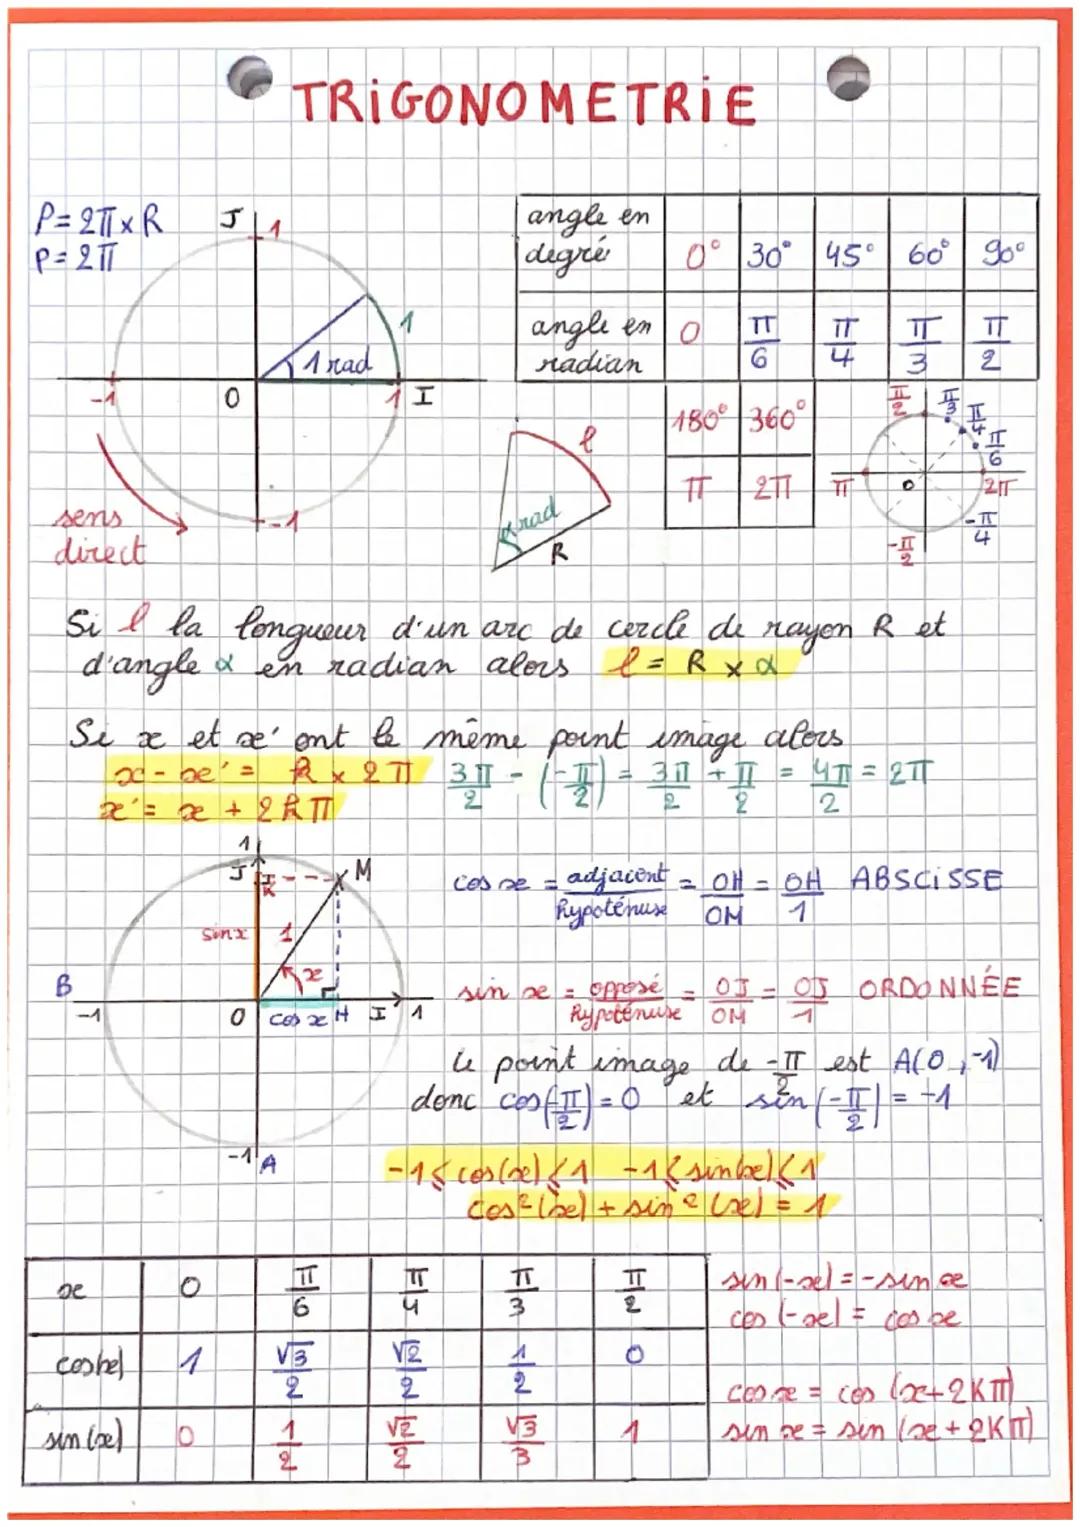 TRiGONOMETRiE
P = 2π x R
P = 2π
J 1
1
1 rad
-1 O 1 I
-1
sens
direct
angle en degré 0° 30° 45° 60° 90°
angle en radian 0 π/6 π/4 π/3 π/2
180° 360°
π 2π
l
α rad
R
π/2 π/3 π/4 π/6
π O 2π
-π/4
-π/2
Si l la longueur d'un arc de cercle de rayon R et
d'angle α en radian alors l = R x α
Si x et x' ont le même point image alors
x - x' = k x 2π 3π/2 - (-π/2) = 3π/2 + π/2 = 4π/2 = 2π
x' = x + 2kπ
1
J M
sin x 1
x
B
-1 O cos x H I 1
-1 A
cos x = adjacent/hypoténuse = OH/OM = OH/1 ABSCiSSE
sin x = opposé/hypoténuse = OJ/OM = OJ/1 ORDONNÉE
le point image de -π/2 est A(0,-1)
donc cos(-π/2) = 0 et sin(-π/2) = -1
-1 ⩽ cos(x) ⩽ 1 -1 ⩽ sin(x) ⩽ 1
cos²(x) + sin²(x) = 1
x 0 π/6 π/4 π/3 π/2
cos(x) 1 √3/2 √2/2 1/2 0
sin(x) 0 1/2 √2/2 √3/3 1
sin(-x) = -sin x
cos(-x) = cos x
cos x = cos (x+2Kπ)
sin x = sin (x+2Kπ)